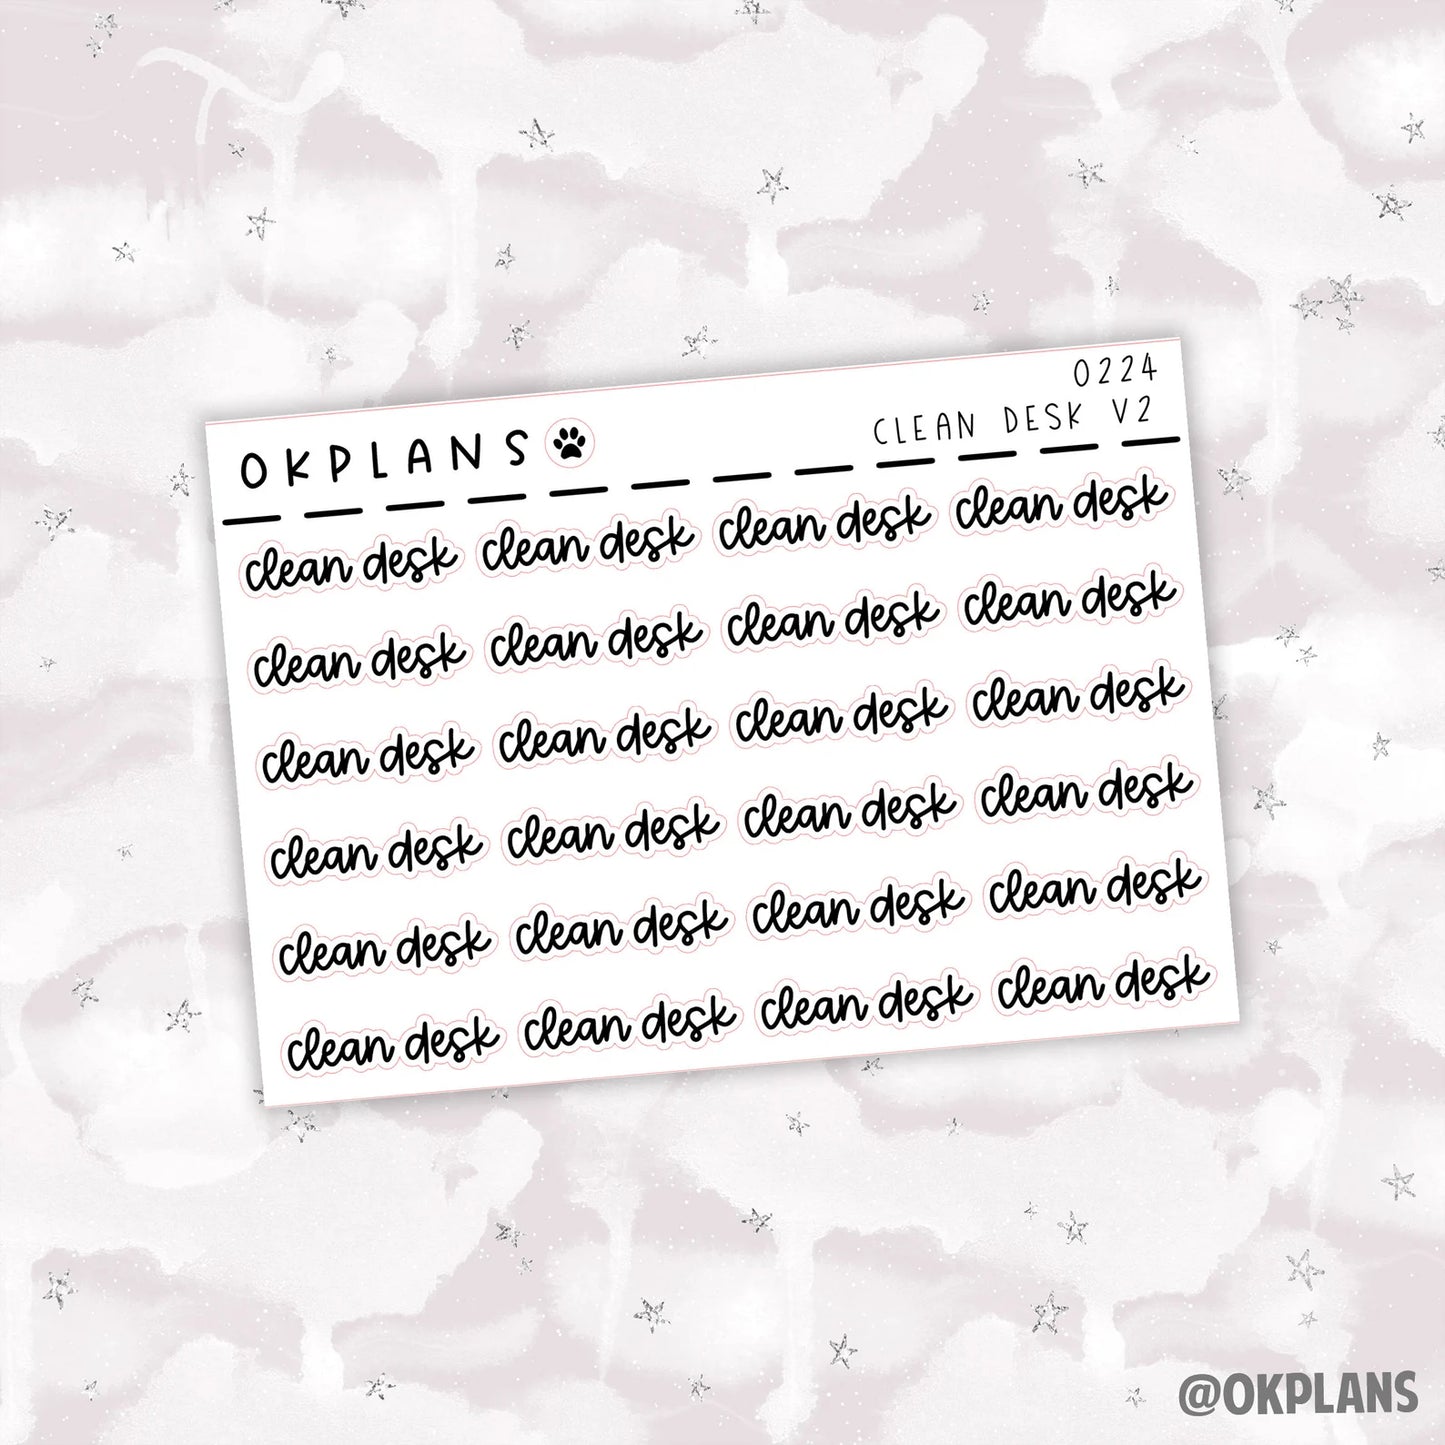 0224
OKPLANS
CLEAN DESK V2
clean desk clean desk clean desk clean desk
clean desk clean desk clean desk clean desk
clean desk clean desk clean desk clean desk
clean desk clean desk clean desk clean desk
clean desk clean desk clean desk clean desk
clean desk clean desk clean desk clean desk
@OKPLANS